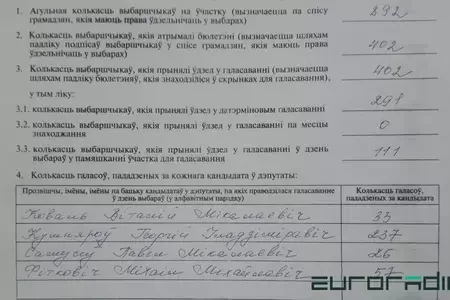 1. Агульная колькасць выбаршчыкаў на ўчастку (вызначаецца па спісу
грамадзян, якія маюць права ўдзельнічаць у выбарах) 892
2. Колькасць выбаршчыкаў, якія атрымалі бюлетэні (вызначаецца шляхам
падліку подпісаў выбаршчыкаў у спісе грамадзян, якія маюць права
ўдзельнічаць у выбарах) 402
3. Колькасць выбаршчыкаў, якія прынялі ўдзел у галасаванні (вызначаецца
шляхам падліку бюлетэняў, якія знаходзіліся ў скрынках для галасавання), 402
у тым ліку:
3.1. колькасць выбаршчыкаў, якія прынялі ўдзел у датэрміновым галасаванні 291
3.2. колькасць выбаршчыкаў, якія прынялі ўдзел у галасаванні па месцы
знаходжання 0
3.3. колькасць выбаршчыкаў, якія прынялі ўдзел у галасаванні ў дзень
выбараў у памяшканні ўчастка для галасавання 111
4. Колькасць галасоў, пададзеных за кожнага кандыдата ў дэпутаты:
Прозвішчы, імёны, імёны па бацьку кандыдатаў у дэпутаты, па якіх праводзілася галасаванне
ў дзень выбараў (у алфавітным парадку)
Колькасць галасоў,
пададзеных за кандыдата
Коваль Віталій Мікалаевіч 33
Георгій Уладзіміравіч 237
Павел Мікалаевіч 26
Фітковіч Міхаіл Міхайлавіч 57
euroradio